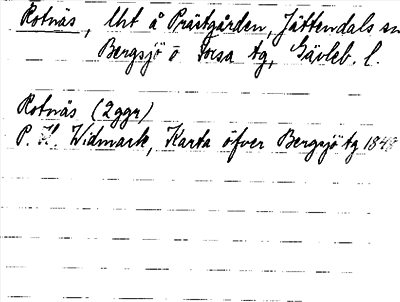 Rotnäs, lht å Prästgården, Jättendals sn
Bergsjö o Forsa tg, Gävleb. l.
Rotnäs (2ggr)
P. H. Widmark, Karta öfver Bergsjö tg 1848